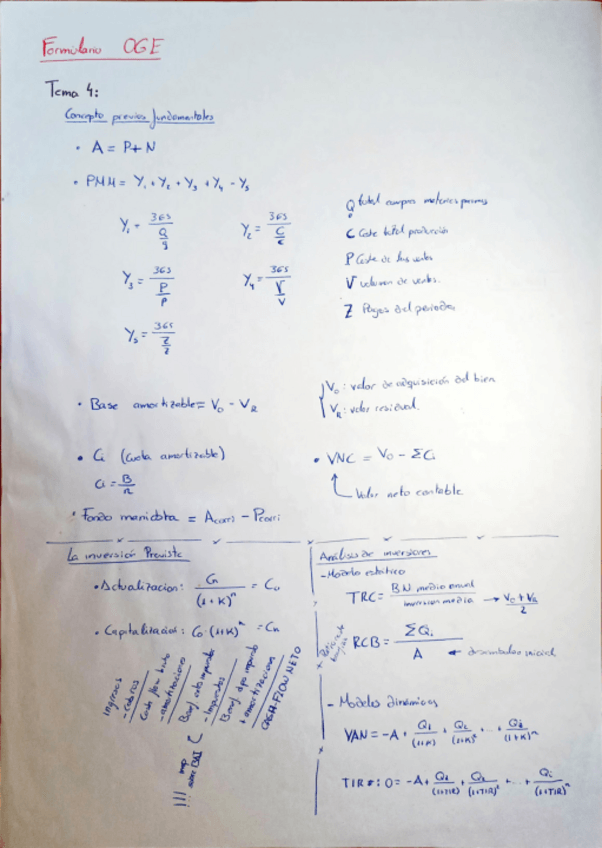 Formulario OGE
Tema 4:
Concepto previos fundamentales
• A = P + N
• PMM = Y₁ + Y₂ + Y₃ + Y₄ - Y₅
Y₁ = 365 / (Q/q)
Y₂ = 365 / (C/c)
Y₃ = 365 / (P/p)
Y₄ = 365 / (V/v)
Y₅ = 365 / (Z/z)
Q total compra materias primas
C Coste total producción
P Coste de las ventas
V volumen de ventas.
Z Pagos del periodo
• Base amortizable = V₀ - V_R
V₀: valor de adquisición del bien
V_R: valor residual.
• Ci (Cuota amortizable)
Ci = B/n
• VNC = V₀ - ΣCi
Valor neto contable
• Fondo maniobra = Acorri - Pcorri
La inversión Prevista
• Actualizacion: Cn / (1+K)ⁿ = C₀
• Capitalizacion: C₀·(1+K)ⁿ = Cn
Ingresos
- cobros
Cash flow bruto
- amortizaciones
Bonef antes impuesto
- Impuestos
Benef dps impuesto
+ amortizaciones
CASH-FLOW NETO
!!! imp sobre BAI
Análisis de inversiones
- Modelo estático
TRC = B.N. medio anual / inversion media → (V₀ + V_R) / 2
RCB = ΣQi / A ← desembolso inicial
- Modelos dinámicos
VAN = -A + Q₁/(1+K) + Q₂/(1+K)² + ... + Qi/(1+K)ⁿ
TIR r: 0 = -A + Q₁/(1+TIR) + Q₂/(1+TIR)² + ... + Qi/(1+TIR)ⁿ